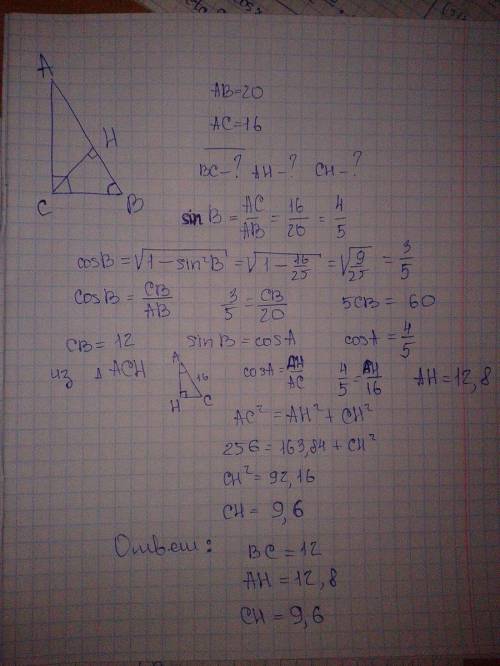 A
H
C
B
AB=20
AC=16
BC-? AH-? CH-?
sin B = AC/AB = 16/20 = 4/5
cosB = √(1-sin²B) = √(1-16/25) = √(9/25) = 3/5
cosB = CB/AB 3/5 = CB/20 5CB = 60
CB = 12 sin B = cosA cosA = 4/5
из Δ ACH A 16 H C cosA = AH/AC 4/5 = AH/16 AH = 12,8
AC² = AH² + CH²
256 = 163,84 + CH²
CH² = 92,16
CH = 9,6
Ответ: BC = 12
AH = 12,8
CH = 9,6